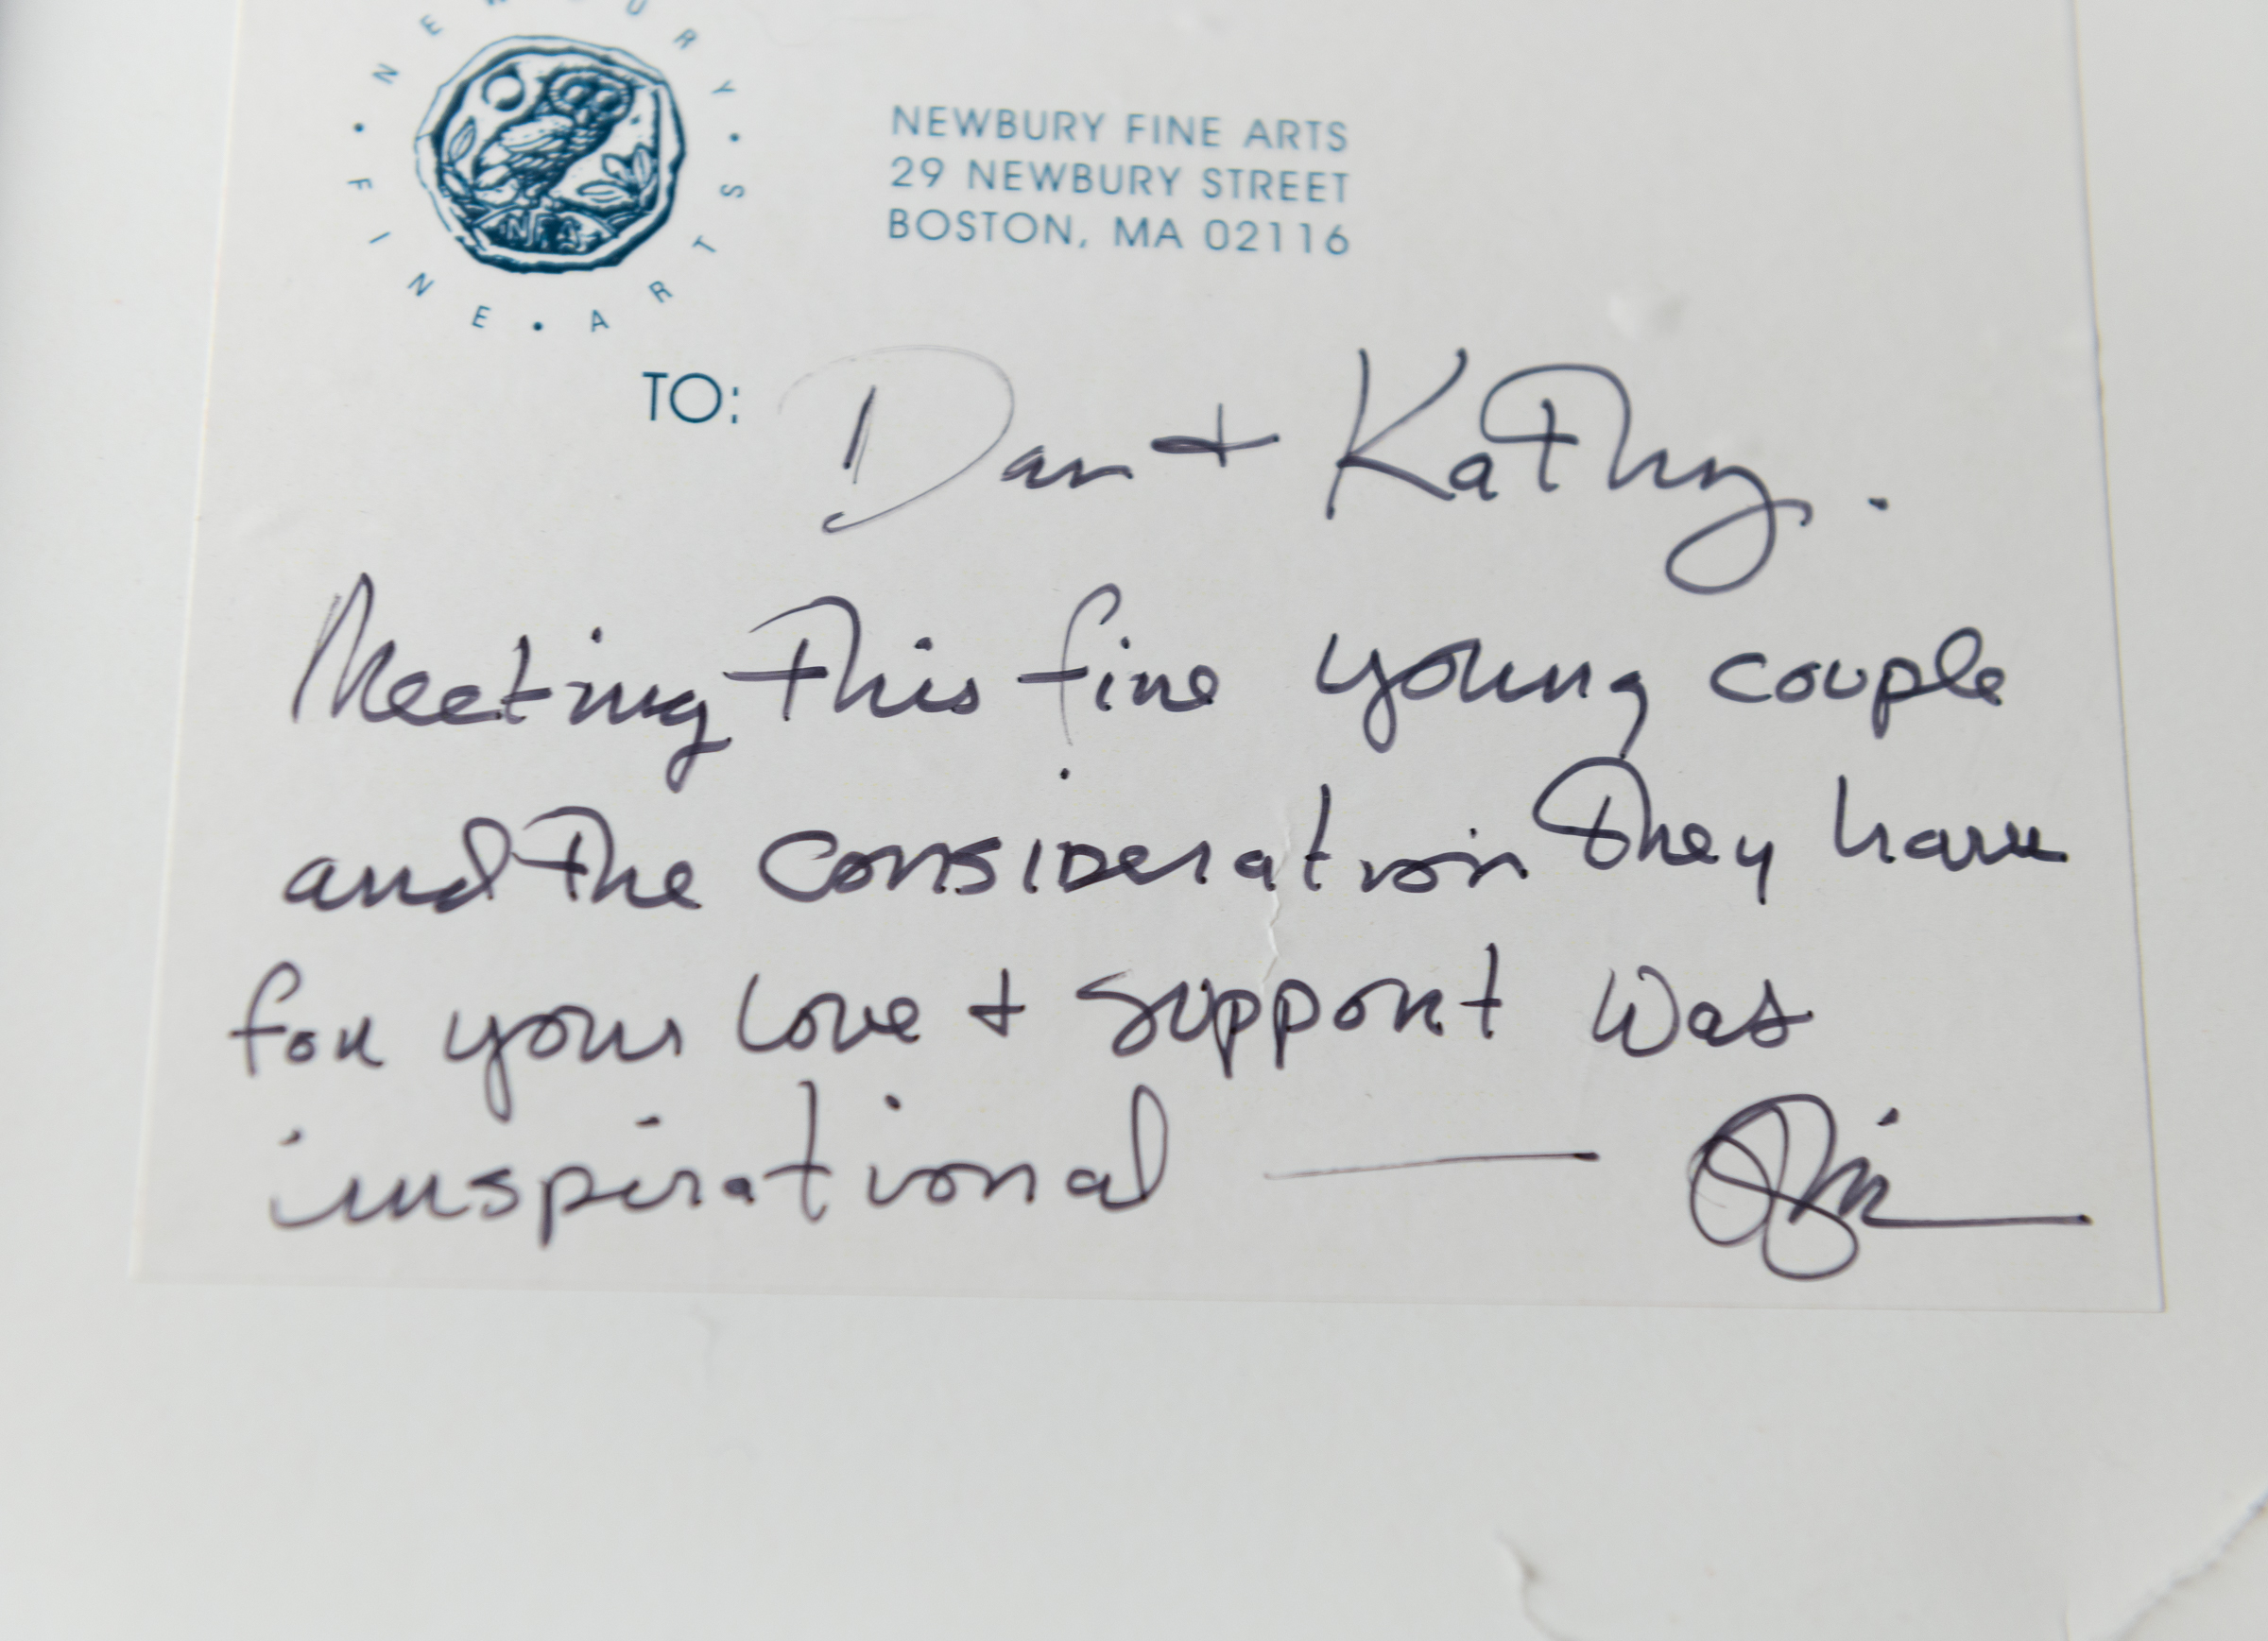 NEWBURY • FINE • ARTS •
NFA
NEWBURY FINE ARTS
29 NEWBURY STREET
BOSTON, MA 02116
TO: Dan + Kathy.
Meeting This fine young couple
and The consideration They have
for your love + support was
inspirational —